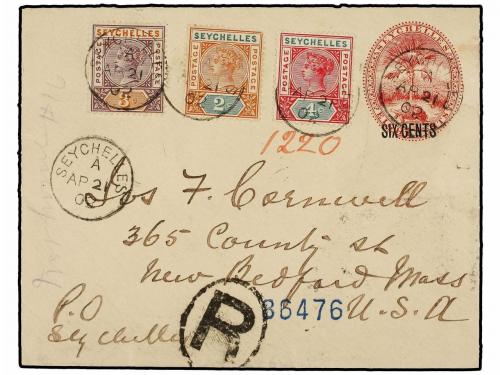 SEYCHELLES
POSTAGE POSTAGE
3
SEYCHELLES
POSTAGE POSTAGE
2
SEYCHELLES
POSTAGE POSTAGE
4
SEYCHELLES
SIX CENTS
1220
SEYCHELLES
A
AP 21
Jos F. Cornwell
365 County St
New Bedford Mass
U.S.A
P.O
Seychelles
R
86476